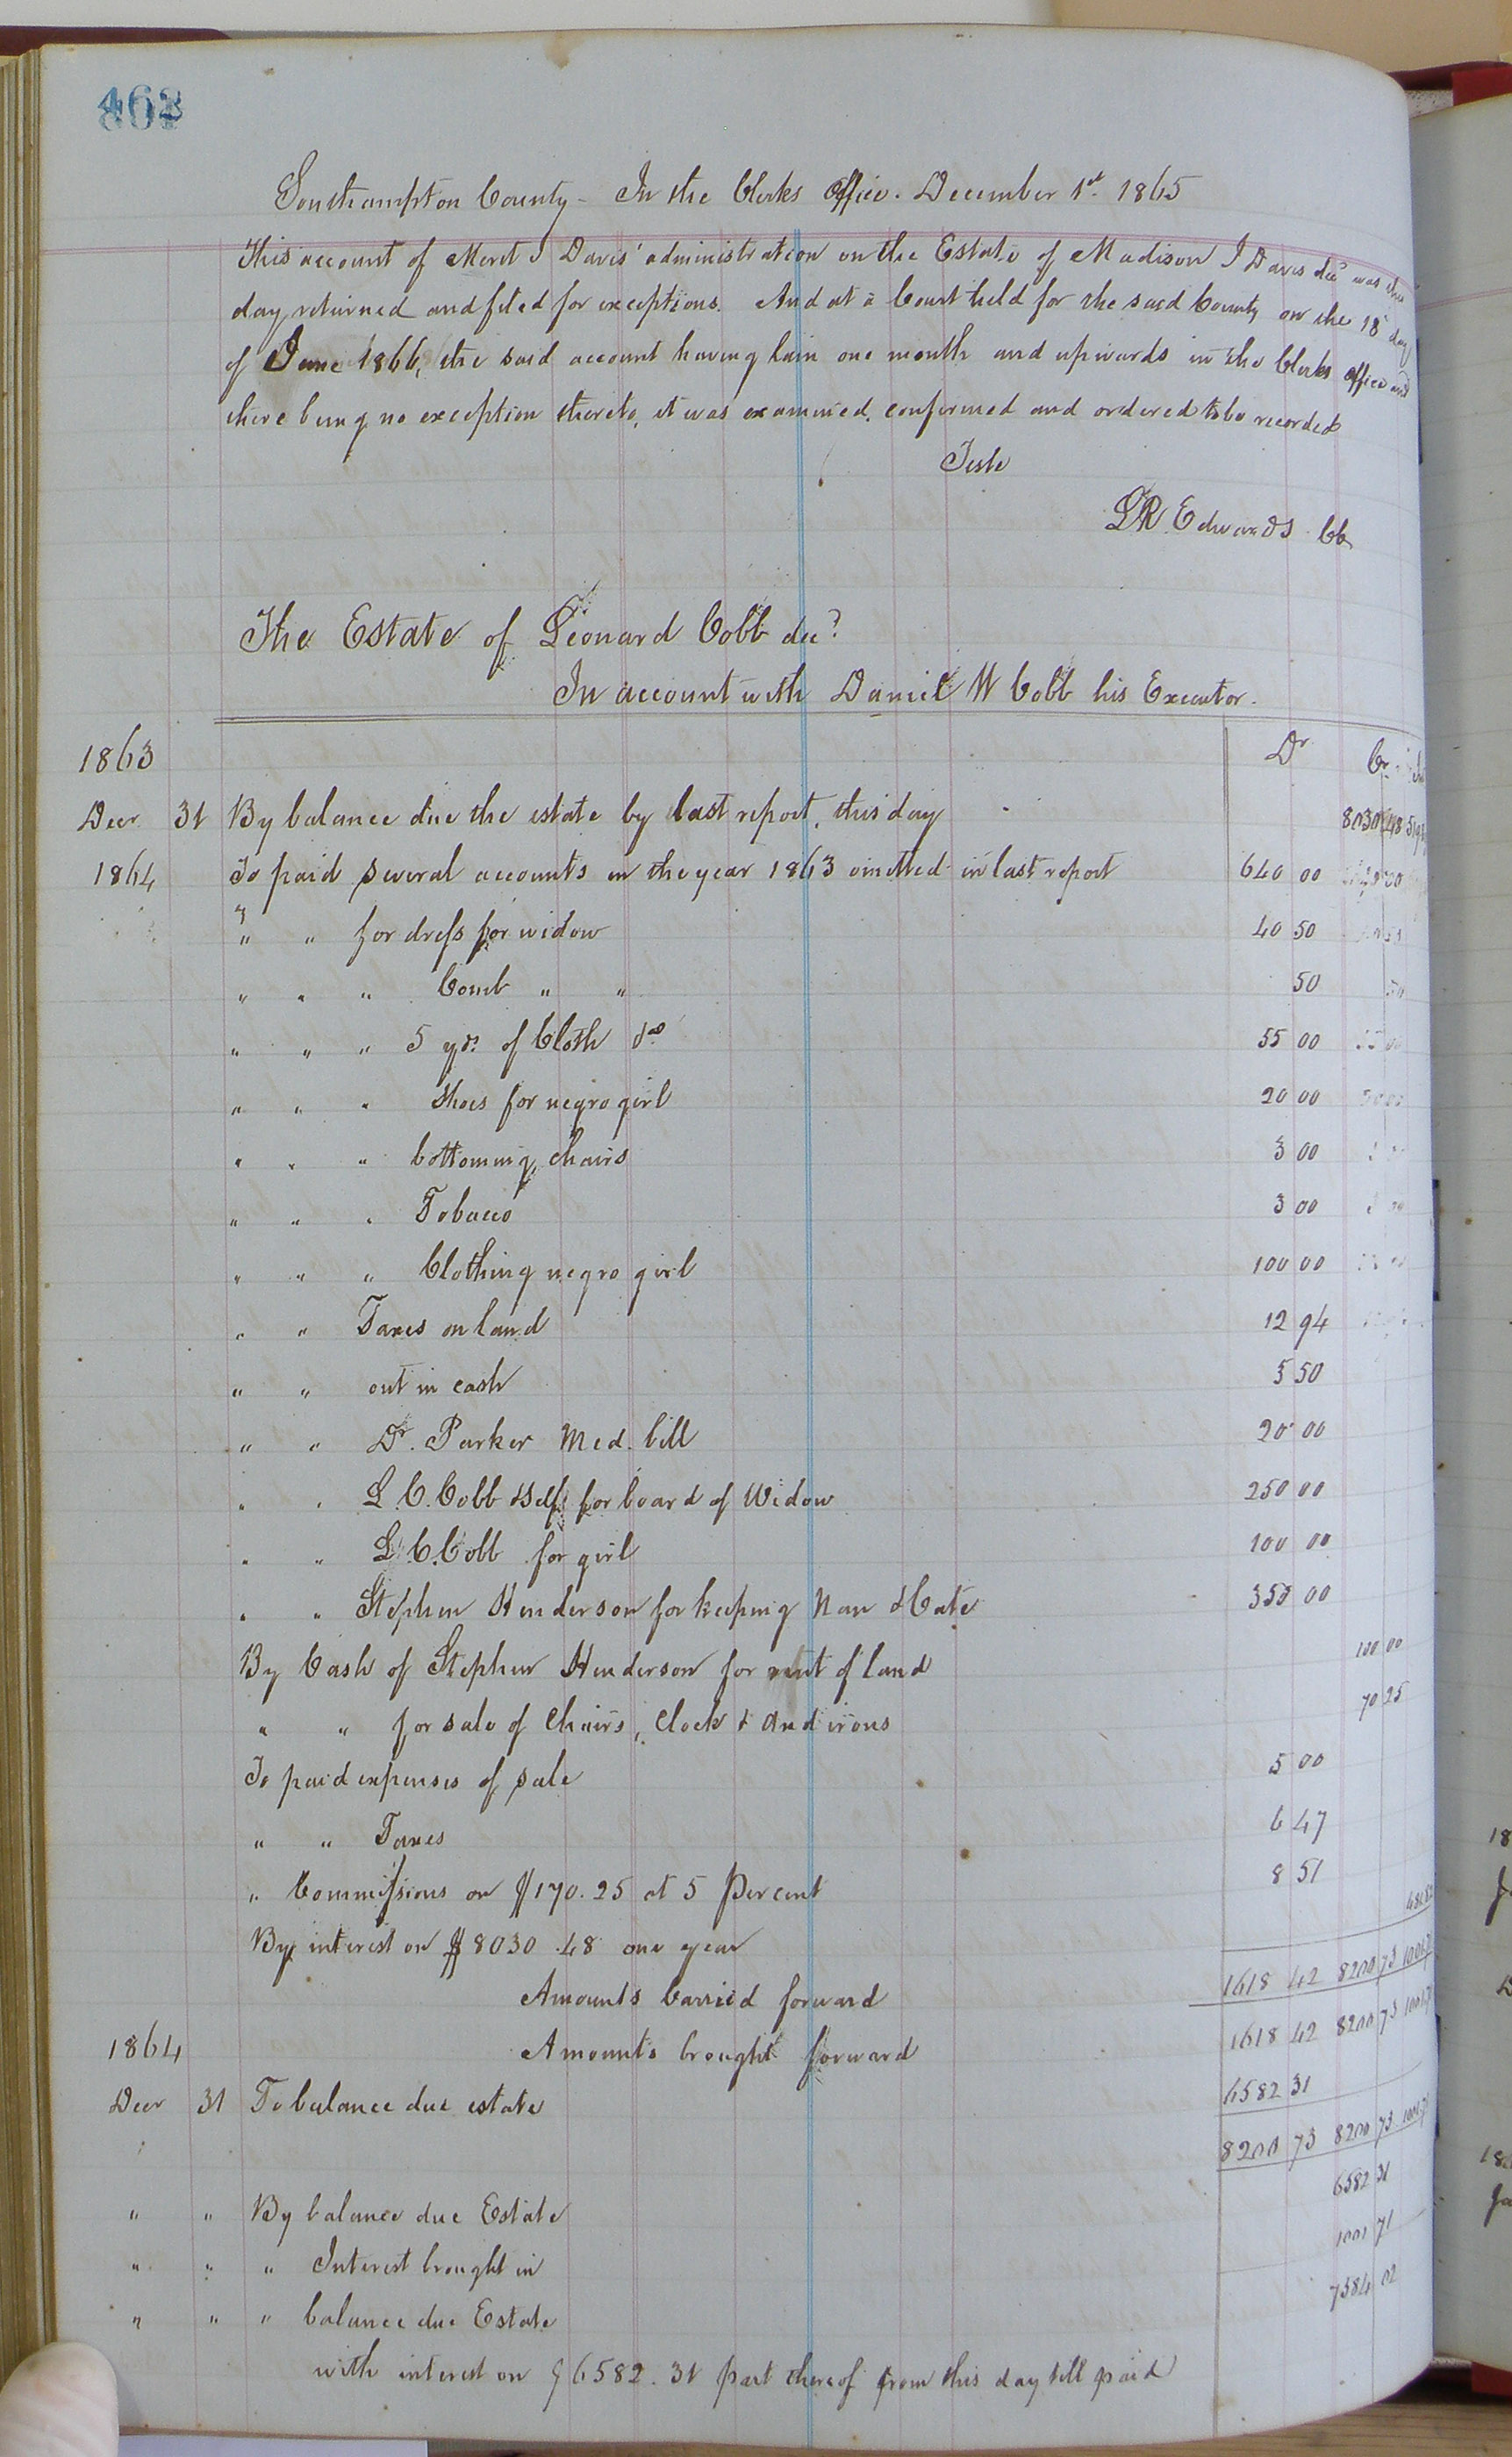 Southampton County - In the Clerks Office. December 1st 1865
This account of Merit J Davis' administration on the Estate of Madison J Davis decd was this
day returned and filed for exceptions. And at a Court held for the said County on the 18th day
of June 1866, the said account having lain one month and upwards in the Clerks office and
there being no exception thereto, it was examined, confirmed and ordered to be recorded
Teste
LR Edwards CC
The Estate of Leonard Cobb decd
In account with Daniel W Cobb his Executor.
1863 Dr Cr
Decr 31 By balance due the estate by last report, this day 8030 48
1864 To paid several accounts in the year 1863 omitted in last report 640 00
" " for dress for widow 40 50
" " " Comb " " 50
" " " 5 yds of Cloth do 55 00
" " " Shoes for negro girl 20 00
" " " bottoming chairs 3 00
" " " Tobacco 3 00
" " " Clothing negro girl 100 00
" " Taxes on land 12 94
" " out in cash 3 50
" " Dr. Parker Med. bill 20 00
" " L. C. Cobb & Self for board of Widow 250 00
" " L. C. Cobb for girl 100 00
" " Stephen Henderson for keeping Nan & Cate 350 00
By Cash of Stephen Henderson for rent of land 100 00
" " for sale of Chairs, Clock & Andirons 70 25
To paid expenses of sale 5 00
" " Taxes 6 47
" Commissions on $170.25 at 5 Percent 8 51
By interest on $8030.48 one year 481 82
Amounts Carried forward 1618 42 8200 73
1864 Amounts brought forward 1618 42 8200 73
Decr 31 To balance due estate 6582 31
8200 73 8200 73
" " By balance due Estate 6582 31
" " " Interest brought in 1001 71
" " " balance due Estate 7584 02
with interest on $6582.31 part thereof from this day till paid